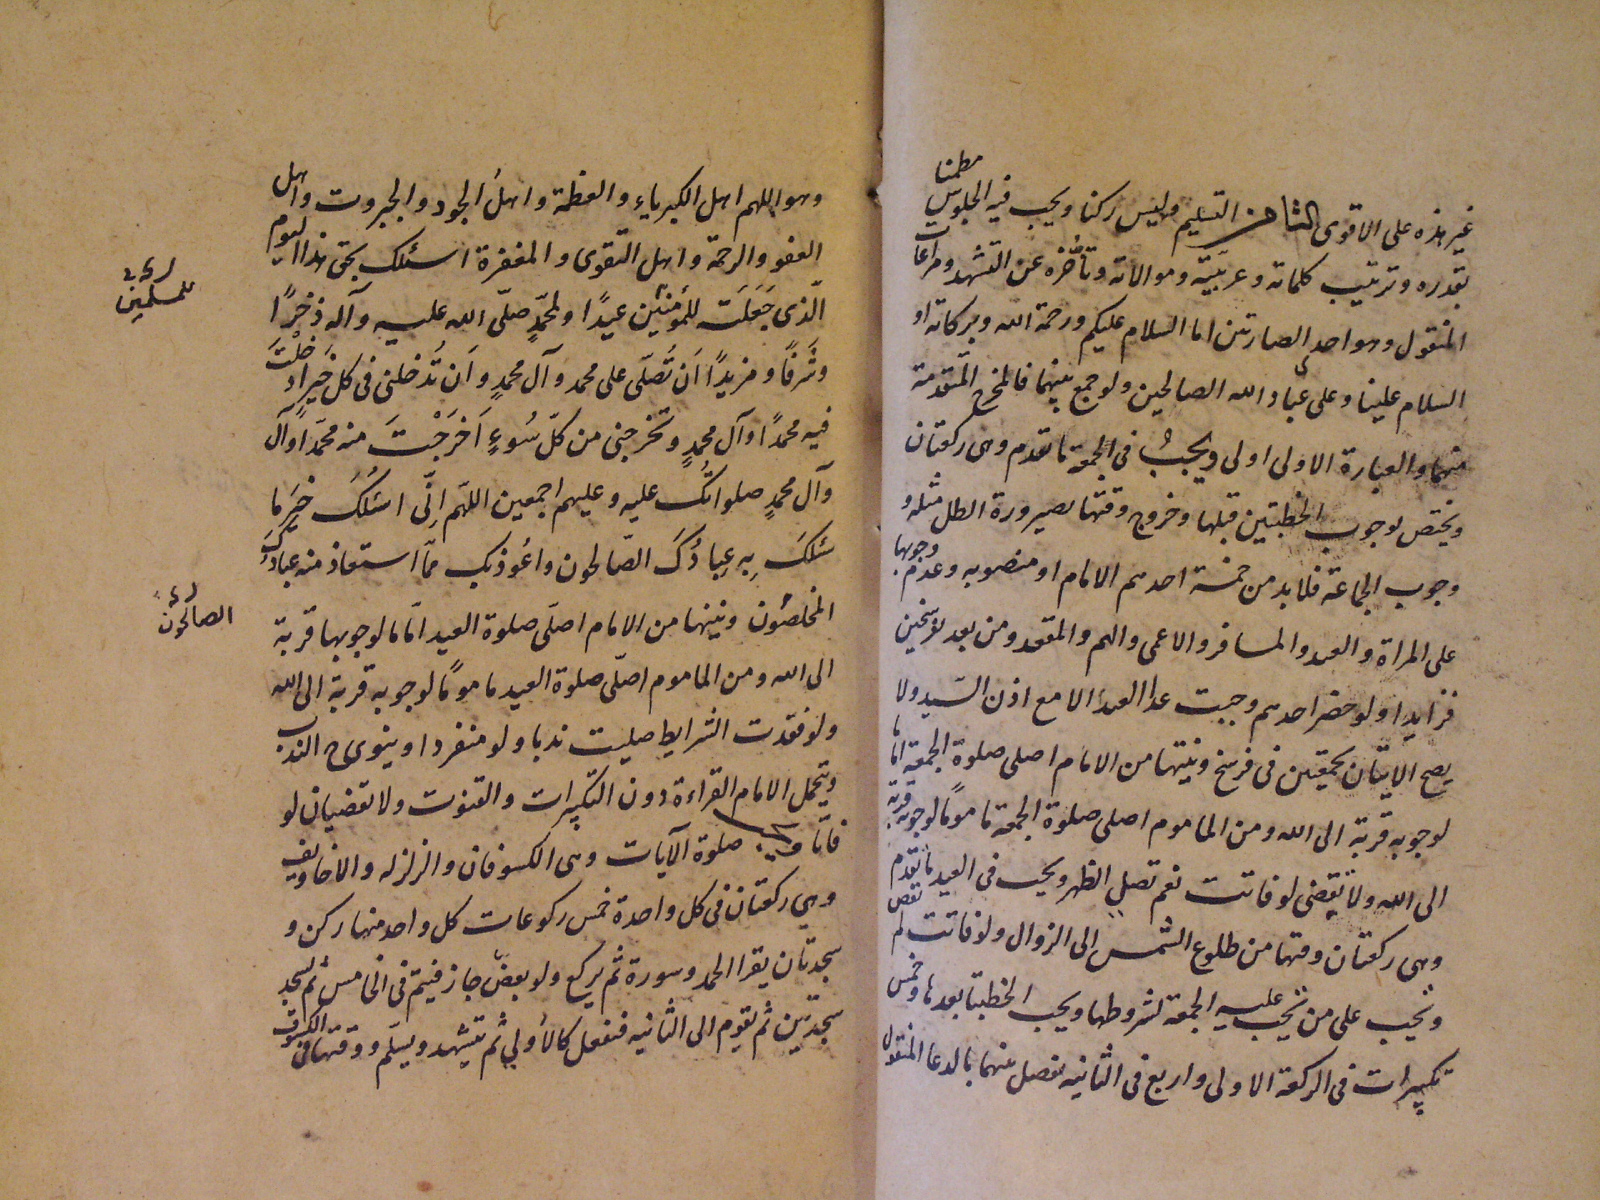 غير هذه على الاقوى الثامن التسليم وليس ركنا ويجب فيه الجلوس مطمئنا
بقدره وترتيب كلماته وعربيته وموالاته وتأخره عن التشهد ومراعات
المنقول وهو احد العبارتين اما السلام عليكم ورحمة الله وبركاته او
السلام علينا وعلى عباد الله الصالحين ولو جمع بينهما فالمخرج المتقدمة
منهما والعبارة الاولى اولى ويجبُ في الجمعة ما تقدم وهى ركعتان
ويختص بوجوب الخطبتين قبلها وخروج وقتها بصيرورة الظل مثله و
وجوب الجماعة فلا بد من خمسة احدهم الامام او منصوبه وعدم وجوبها
على المراة والعبد والمسافر والاعمى والهم والمقعد ومن بعد بفرسخين
فزايدا ولو حضر احدهم وجبت عدا العبد الا مع اذن السّيد ولا
يصح الايتان بجمعتين فى فرسخ ونيتها من الامام اصلى صلوة الجمعة اماما
لوجوبه قربة الى الله ومن الماموم اصلى صلوة الجمعة ماموما لوجوبه قربة
الى الله ولا تقضى لو فاتت نعم تصلى الظهر ويجب فى العيد ما تقدم
وهى ركعتان وقتها من طلوع الشمس الى الزوال ولو فاتت لم تقض
وتجب على من تجب عليه الجمعة لشروطها ويجب الخطبتا بعدها وخمس
تكبيرات فى الركعة الاولى واربع فى الثانيه يفصل بينهما بالدعا المنقول
وهو اللهم اهل الكبرياء والعظمة واهلُ الجود والجبروت واهل
العفو والرحمة واهل التّقوى والمغفرة اسئلك بحق هذا اليوم
الّذى جَعَلَت للمُؤمنين عيدًا ولمحمّدٍ صلّى الله عليه وآله ذخرًا
وشَرفًا ومزيدًا اَن تُصَلّى على محمد وآل محمدٍ واَن تُدخلنى فى كل خَيرٍ ادخلْتَ
فيه محمدًا وآل محمدٍ وتخرجنى من كلّ سُوءٍ اَخرَجْتَ منه محمّدًا وآل
وآل محمدٍ صلواتُك عليه وعليهم اجمعين اللهَم اِنّى اسئلُكَ خيرَ ما
سئلكَ بِه عِبادُكَ الصّالحون واعُوذ بك ممّا استعاذ منه عبادُكَ
المخلصُون ونيتها من الامام اصلّى صلوة العيد امَاما لوجوبها قربة
الى الله ومن الماموم اصلّى صلوة العيد ماموما لوجوبه قربة الى الله
ولو فقدت الشرايط صليت ندبا ولو منفردا وينوى ح الندب
ويتحمل الامام القراءة دون التكبيرات والقنوت ولا تقضيان لو
فاتا و صلوة الآيات وهى الكسوفان والزلزله والاخاويف
وهي ركعتان فى كل واحدة خمس ركوعات كل واحد منها ركن و
سجدتان يقرا الحمد وسورة ثم يركع ولو بعض جاز فيتم فى الخامس ثم يسجد
سجدتين ثم يقوم الى الثانيه فيفعل كالأولى ثم يتشهد ويسَلّم ووقتها فى الكسوف
للمسلمين
الصالحون